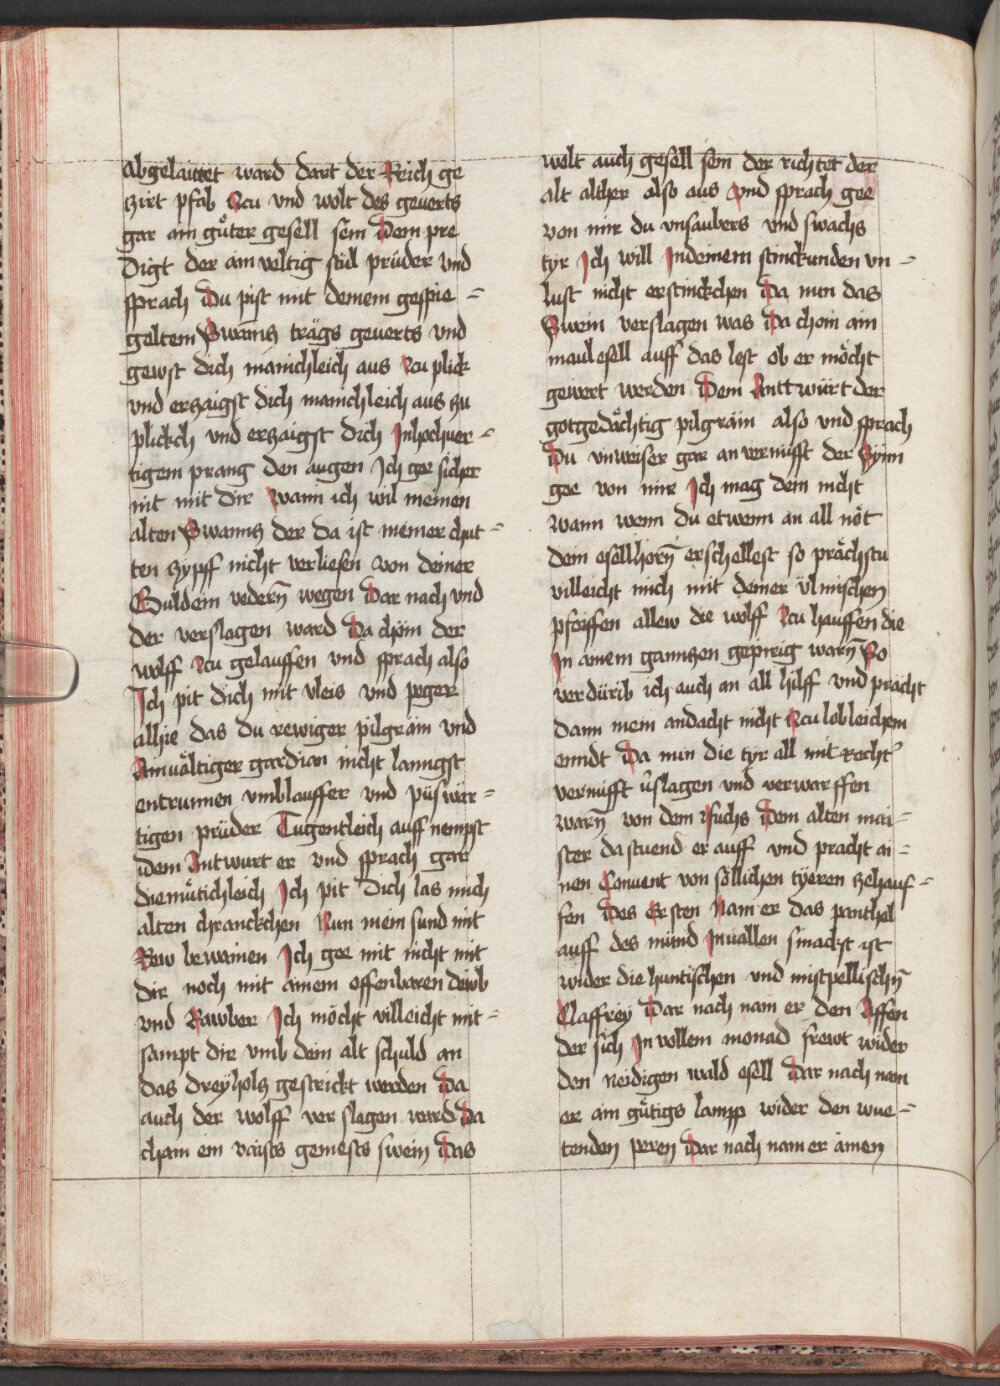 abgelaittet ward dart der Reich ge
zirt pfab Zcu vnd wolt des geuerts
gar ain gůter gesell sein Dem pre
digt der ainveltig stul prüder vnd
sprach Du pist mit deinem gespie =
geltem Swantz trägs geuerts vnd
gewst dich manichleich aus Zcu plick
vnd erzaigst dich manichleich aus zu
plickch vnd erzaigst dich Inhochuer =
tigem prang den augen Ich gee sicher
nit mit dir Wann ich wil meinen
alten Swanntz der da ist meiner chut =
ten zypff nicht verliesen von deiner
Guldein vedern̄ wegen Dar nach vnd
der verslagen ward Da chöm der
wolff Zcu gelauffen vnd sprach also
Ich pit dich mit vleis vnd peger
allhie das du rewiger pilgräm vnd
Ainuältiger gardian nicht lanngst
entrunnen vmblauffer vnd püswer =
tigen prüder Tugentleich auff nempst
idem Antwurt er vnd sprach gar
diemůtichleich Ich pit dich las mich
alten chranckchen Nun mein sund mit
Rew bewainen Ich gee mit nicht mit
dir noch mit ainem offenbaren dewb
vnd Rawber Ich möcht villeicht mit =
sampt dir vmb dein alt schuld an
das dreyholtz gestrickt werden Da
auch der wolff ver slagen ward Da
cham ein vaists gemests swein Das
wolt auch gesell sein der richtet der
alt alther also aus Vnd sprach gee
von mir du vnsaubers vnd swachs
tyr Ich will Indeinem stinckunden vn =
lust nicht erstinckchen Da nun das
Swein verslagen was Da chom ain
maulesell auff das lest ob er möcht
gewert werden Dem Antt würt der
gotgedächtig pilgräm also vnd sprach
Du vnweiser gar an vernüfft der Synn
gee von mir Ich mag dein nicht
wann wenn du etwenn an all nöt
dem esellhorn̄ erschellest so prächstu
villeicht mich mit deiner ülmischen
pfeiffen allew die wolff Zcu hauffen die
In ainem ganntzen gepirig warn̄ So
verdürib ich auch an all hilff vnd prächt
dann mein andacht nicht Zcu lobleichem
enndt Da nun die tyr all mit recht
vernüfft v̄slagen vnd verwarffen
warn̄ von dem Fuchs Dem alten mai =
ster da stuend er auff vnd pracht ai =
nen Conuent von söllichen tyeren zehauf =
fen Des Ersten Nam er das panthel
auff des münd Inuallen smackt ist
wider die huntischen vnd mistpellischn̄
Claffrey Dar nach nam er den Affen
der sich In vollem monad frewt wider
den neidigen wald esell Dar nach nam
er ain gütigs lampp wider den wue =
tenden peren Dar nach nam er ainen